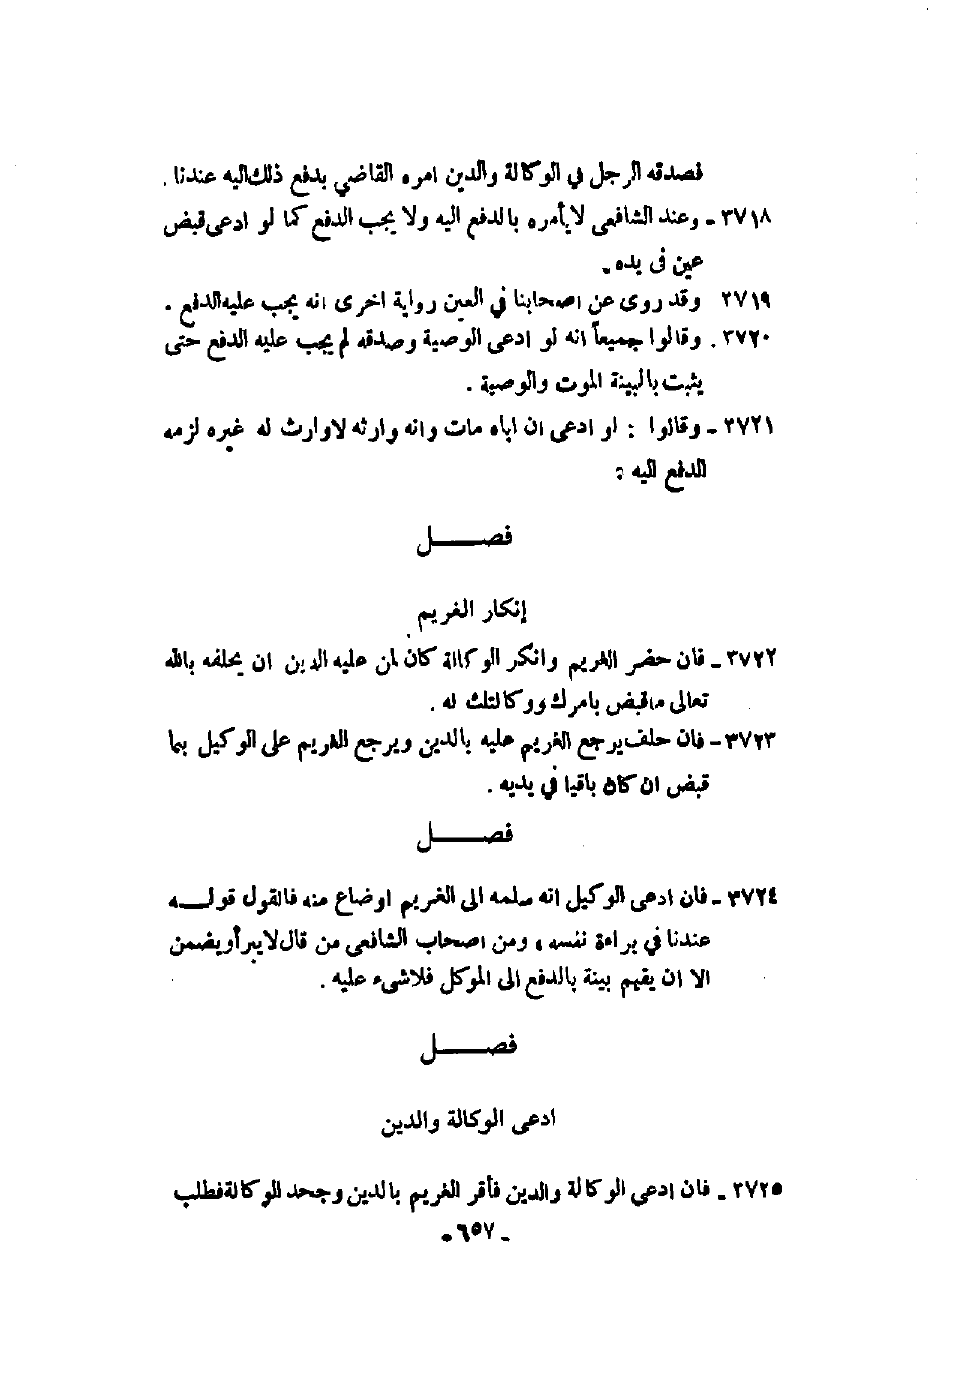 فصدقه الرجل في الوكالة والدين امره القاضي بدفع ذلك اليه عندنا .
٣٧١٨ ـ وعند الشافعى لا يأمره بالدفع اليه ولا يجب الدفع كما لو ادعى قبض
عين فى يده .
٣٧١٩ وقد روى عن اصحابنا في العين رواية اخرى انه يجب عليه الدفع .
٣٧٢٠ . وقالوا جميعاً انه لو ادعى الوصية وصدقه لم يجب عليه الدفع حتى
يثبت بالبينة الموت والوصية .
٣٧٢١ ـ وقالوا : لو ادعى ان اباه مات وانه وارثه لاوارث له غيره لزمه
الدفع اليه :
فصــــــل
إنكار الغريم
٣٧٢٢ ـ فان حضر الغريم وانكر الوكالة كان لمن عليه الدين ان يحلفه بالله
تعالى ماقبض بامرك ووكالتك له .
٣٧٢٣ - فان حلف يرجع الغريم عليه بالدين ويرجع الغريم على الوكيل بما
قبض ان كان باقيا في يديه .
فصــــــل
٣٧٢٤ ـ فان ادعى الوكيل انه سلمه الى الغريم اوضاع منه فالقول قولـــه
عندنا في براءة نفسه ، ومن اصحاب الشافعى من قال لايبرأ ويضمن
الا ان يقيم بينة بالدفع الى الموكل فلاشىء عليه .
فصــــــل
ادعى الوكالة والدين
٣٧٢٥ ـ فان ادعى الوكالة والدين فأقر الغريم بالدين وجحد الوكالة فطلب
ـ ٦٥٧ ـ